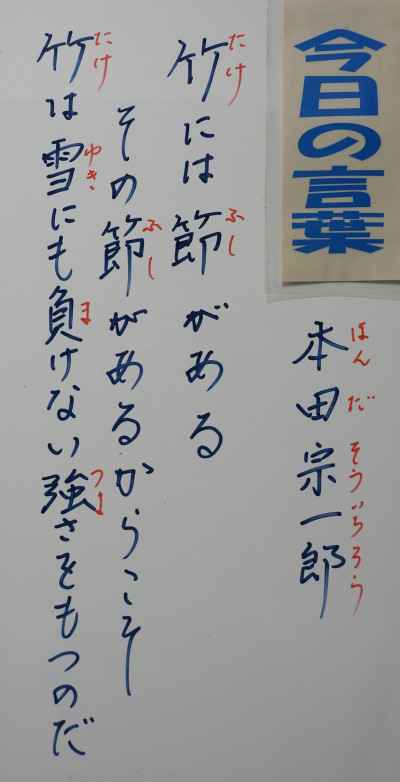 今日の言葉
本田宗一郎
ほんだそういちろう
竹には節がある
たけ ふし
その節があるからこそ
ふし
竹は雪にも負けない強さをもつのだ
たけ ゆき ま つよ